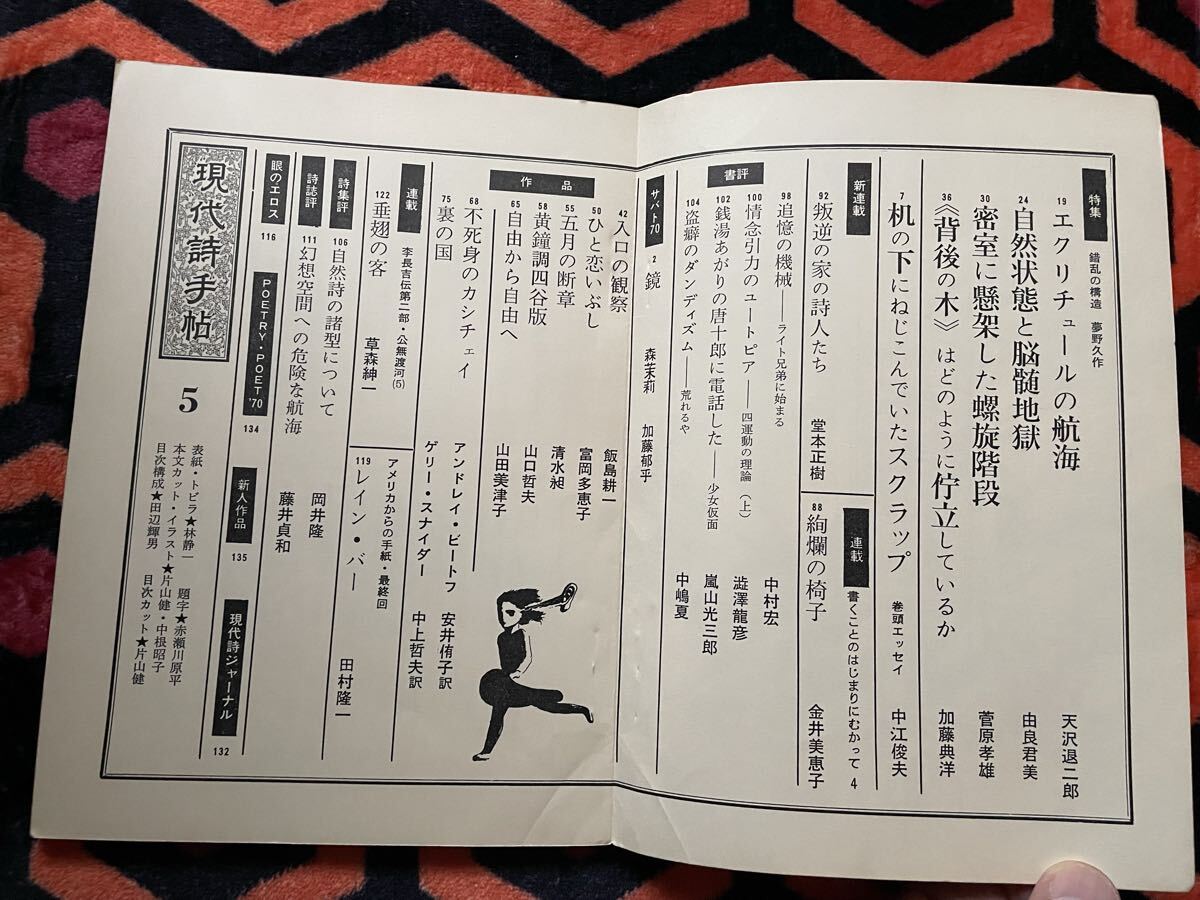 特集
錯乱の構造 夢野久作
19 エクリチュールの航海 天沢退二郎
24 自然状態と脳髄地獄 由良君美
30 密室に懸架した螺旋階段 菅原孝雄
36 《背後の木》はどのように佇立しているか 加藤典洋
7 机の下にねじこんでいたスクラップ 巻頭エッセイ 中江俊夫
新連載
92 叛逆の家の詩人たち 堂本正樹
連載
書くことのはじまりにむかって 4
88 絢爛の椅子 金井美恵子
書評
98 追憶の機械——ライト兄弟に始まる 中村宏
100 情念引力のユートピア——四運動の理論(上) 澁澤龍彦
102 銭湯あがりの唐十郎に電話した——少女仮面 嵐山光三郎
104 盗癖のダンディズム——荒れるや 中嶋夏
サバト70
2 鏡 森茉莉 加藤郁乎
作品
42 入口の観察 飯島耕一
50 ひと恋いぶし 富岡多恵子
55 五月の断章 清水昶
58 黄鐘調四谷版 山口哲夫
65 自由から自由へ 山田美津子
68 不死身のカシチェイ アンドレイ・ビートフ 安井侑子訳
75 裏の国 ゲリー・スナイダー 中上哲夫訳
連載
李長吉伝第二部・公無渡河(5)
122 垂翅の客 草森紳一
アメリカからの手紙・最終回
119 レイン・バー 田村隆一
詩集評
106 自然詩の諸型について 岡井隆
詩誌評
111 幻想空間への危険な航海 藤井貞和
眼のエロス
116
POETRY・POET'70
134
新人作品
135
現代詩ジャーナル
132
現代詩手帖
5
表紙・トビラ★林静一 題字★赤瀬川原平
本文カット・イラスト★片山健・中根昭子
目次構成★田辺輝男 目次カット★片山健